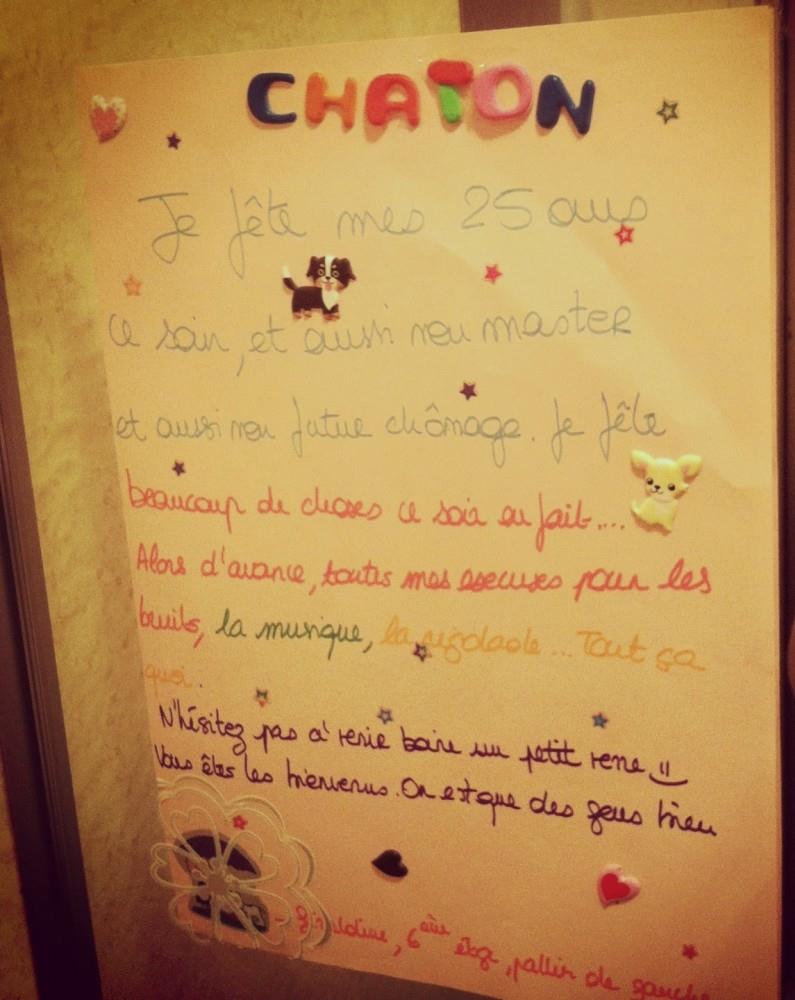 CHATON
Je fête mes 25 ans
ce soir, et aussi mon master
et aussi mon futur chômage. Je fête
beaucoup de choses ce soir en fait....
Alors d'avance, toutes mes excuses pour les
bruits, la musique, la rigolade... Tout ça
quoi.
N'hésitez pas à venir boire un petit verre !!
Vous êtes les bienvenus. On est que des gens bien
6ème étage, pallier de gauche